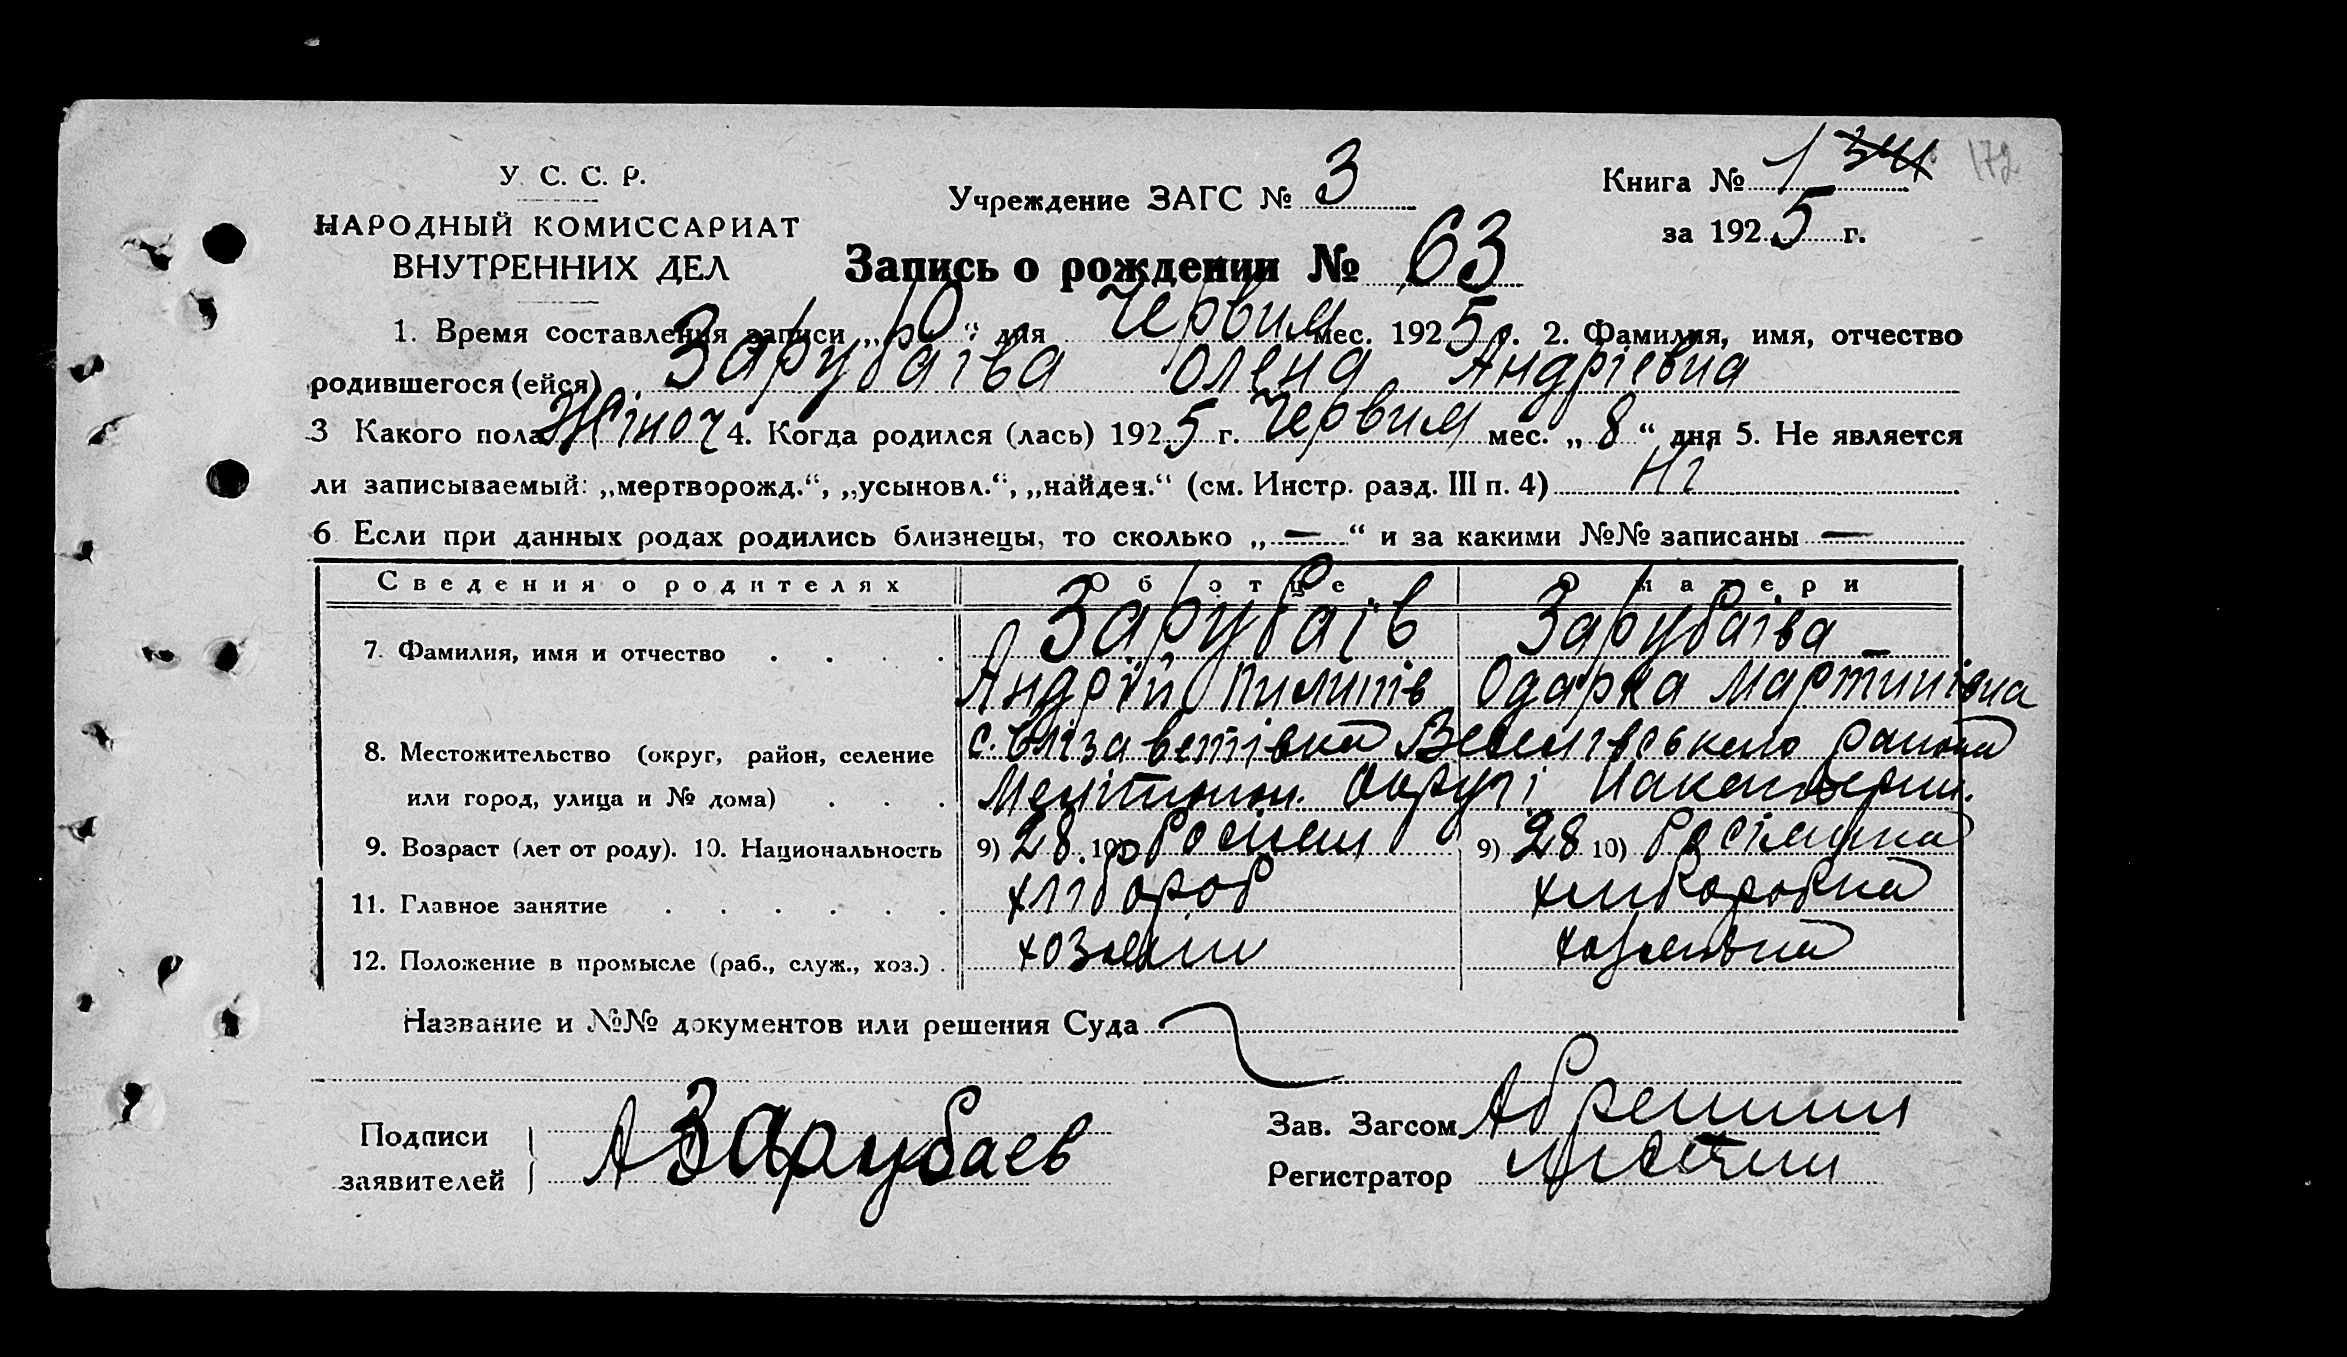 У. С. С. Р.
НАРОДНЫЙ КОМИССАРИАТ
ВНУТРЕННИХ ДЕЛ
Учреждение ЗАГС № 3
Книга № 1 172
за 1925 г.
Запись о рождении № 63
1. Время составления записи „10“ дня Червим мес. 1925 г. 2. Фамилия, имя, отчество
родившегося (ейся) Зарубаіва Олена Андріевна
3 Какого пола Жіноч 4. Когда родился (лась) 1925 г. Червим мес. „8“ дня 5. Не является
ли записываемый: „мертворожд.“, „усыновл.“, „найден.“ (см. Инстр. разд. III п. 4) Ні
6 Если при данных родах родились близнецы, то сколько „—“ и за какими №№ записаны —
Сведения о родителях Об отце О матери
7. Фамилия, имя и отчество . . . . Зарубаів Зарубаіва
Андрій Пилипів Одарка Мартинівна
8. Местожительство (округ, район, селение с. Єлізаветівка Веселівського района
или город, улица и № дома) . . . Мелітоп. Округі
9. Возраст (лет от роду). 10. Национальность 9) 28 10) 9) 28 10)
11. Главное занятие . . . . . . хлібороб хліборобка
12. Положение в промысле (раб., служ., хоз.) . хозяїн
Название и №№ документов или решения Суда
Подписи
заявителей А Зарубаев
Зав. Загсом
Регистратор